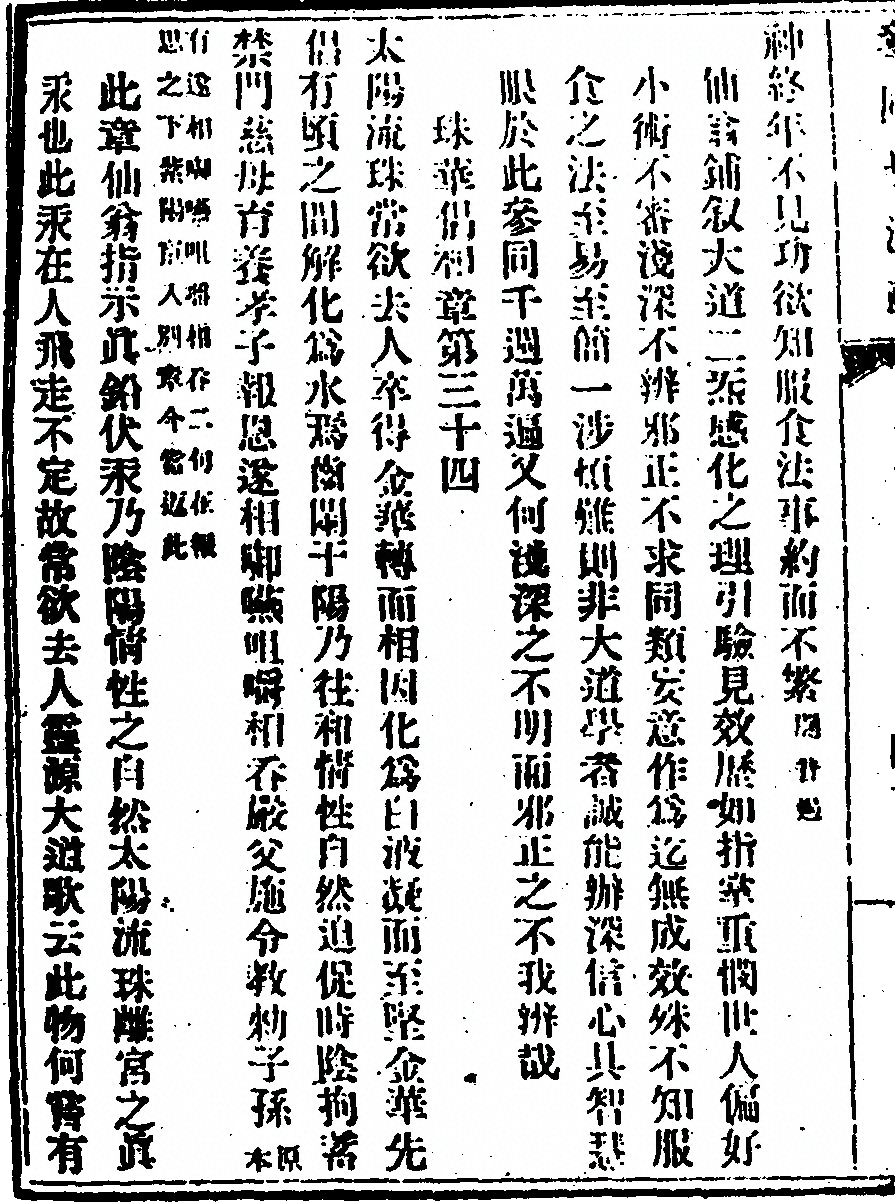 神終年不見功欲知服食法事約而不繁
仙翁鋪叙大道二炁感化之理引驗見效歷如指掌重憫世人偏好
小術不審淺深不辨邪正不求同類妄意作爲迄無成效殊不知服
食之法至易至簡一涉煩難則非大道學者誠能辦深信心具智慧
眼於此參同千週萬遍又何淺深之不明而邪正之不我辨哉
珠華倡和章第三十四
太陽流珠常欲去人卒得金華轉而相因化爲白液凝而至堅金華先
倡有頃之間解化爲水馬齒闌干陽乃往和情性自然迫促時陰拘畜
禁門慈母育養孝子報恩遂相啣嚥咀嚼相吞嚴父施令教勑子孫原本
有遂相啣嚥咀嚼相吞二句在報
思之下紫陽眞人別眾今當返此
此章仙翁指示眞鉛伏汞乃陰陽情性之自然太陽流珠離宮之眞
汞也此汞在人飛走不定故常欲去人靈源大道歌云此物何嘗有